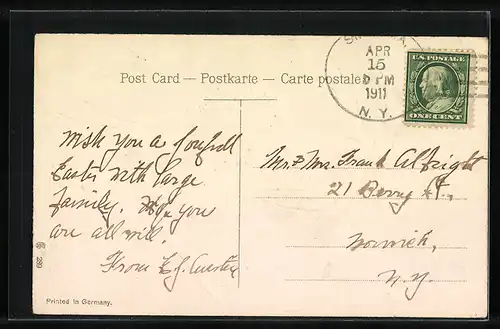 APR
15
PM
1911
N. Y.
U.S. POSTAGE
ONE CENT
Post Card — Postkarte — Carte postale
Wish you a joyfull
Easter with large
family. Hope you
are all well.
From
Mr. & Mrs. Frank Albright
21 Berry St.,
Norwich,
N.Y.
239
Printed in Germany.